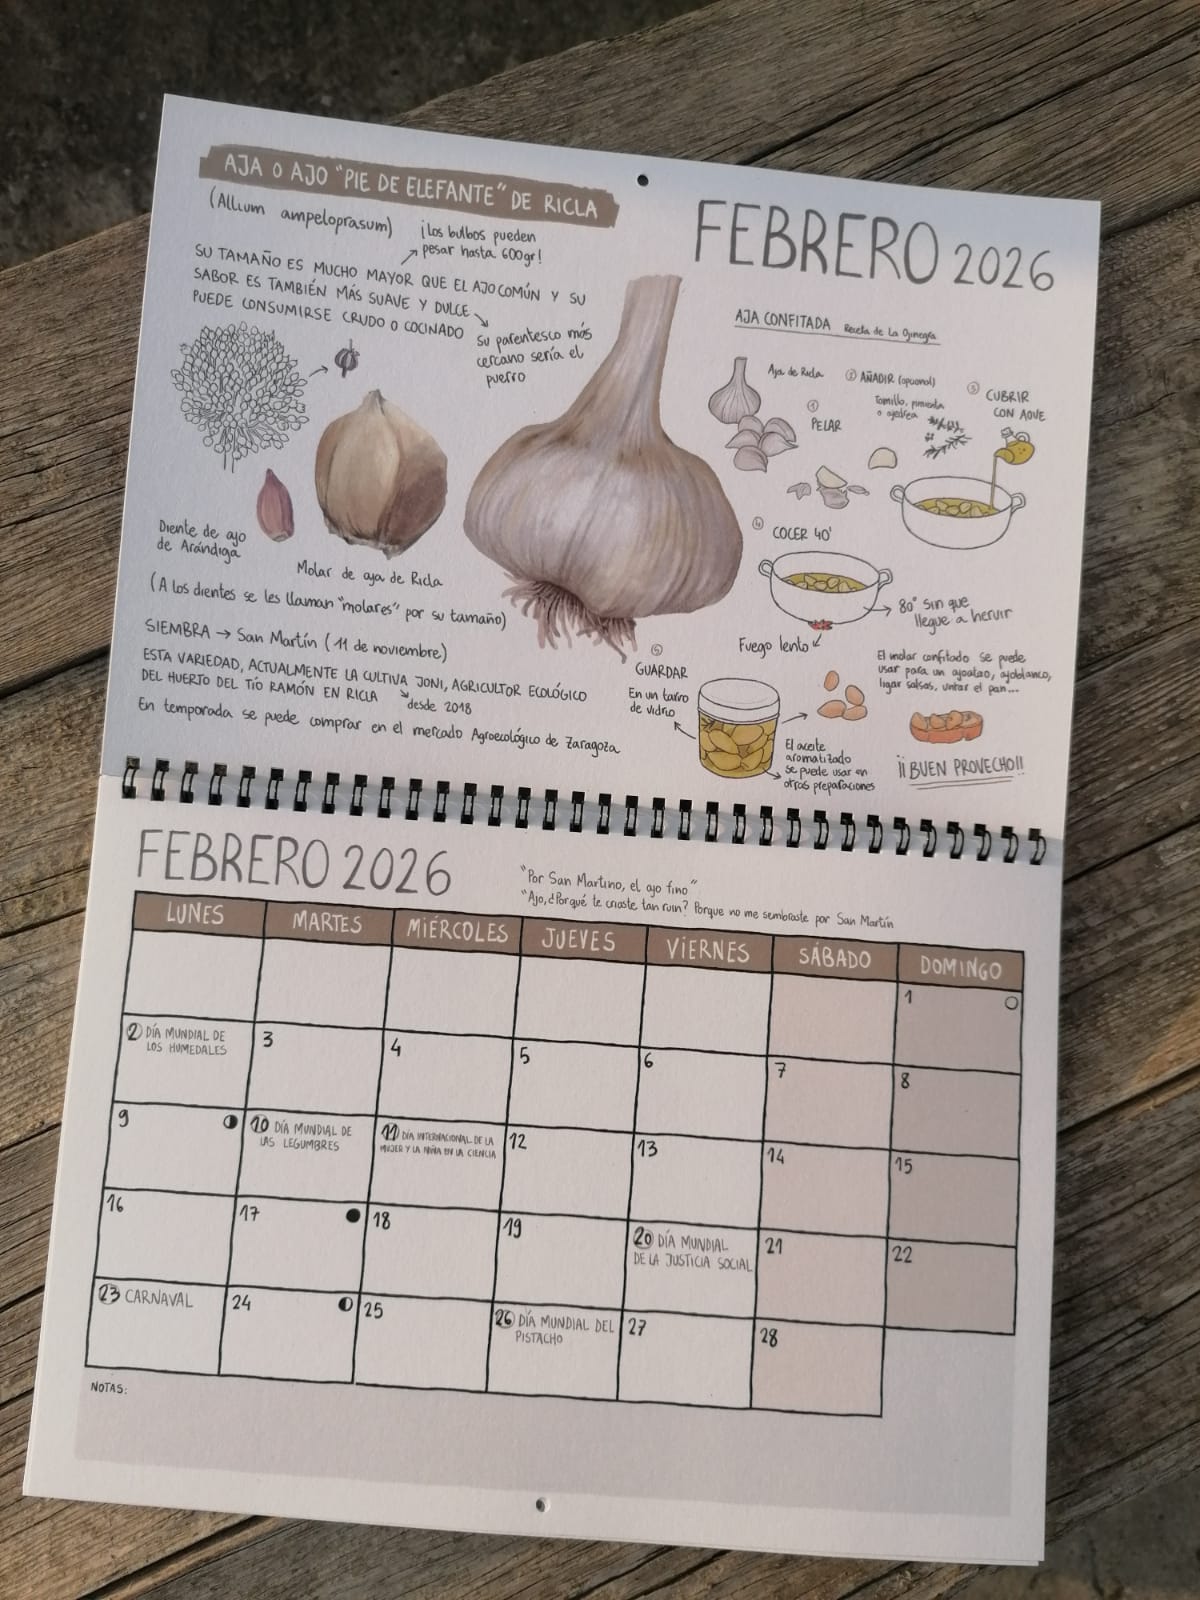 AJA O AJO "PIE DE ELEFANTE" DE RICLA
(Allium ampeloprasum)
¡Los bulbos pueden
pesar hasta 600gr!
SU TAMAÑO ES MUCHO MAYOR QUE EL AJO COMÚN Y SU
SABOR ES TAMBIÉN MÁS SUAVE Y DULCE
PUEDE CONSUMIRSE CRUDO O COCINADO
su parentesco más
cercano sería el
puerro
Diente de ajo
de Arándiga
Molar de aja de Ricla
(A los dientes se les llaman "molares" por su tamaño)
SIEMBRA → San Martín (11 de noviembre)
ESTA VARIEDAD, ACTUALMENTE LA CULTIVA JONI, AGRICULTOR ECOLÓGICO
DEL HUERTO DEL TÍO RAMÓN EN RICLA
desde 2018
En temporada se puede comprar en el mercado Agroecológico de Zaragoza
FEBRERO 2026
AJA CONFITADA Receta de La Ojinegra
Aja de Ricla
① PELAR
② AÑADIR (opcional)
Tomillo, pimienta
o ajedrea
③ CUBRIR
CON AOVE
④ COCER 40'
80° sin que
llegue a hervir
Fuego lento
⑤
GUARDAR
En un tarro
de vidrio
El aceite
aromatizado
se puede usar en
otras preparaciones
El molar confitado se puede
usar para un ajoaizo, ajoblanco,
ligar salsas, untar el pan...
¡¡BUEN PROVECHO!!
FEBRERO 2026
"Por San Martino, el ajo fino"
"Ajo, ¿Porqué te criaste tan ruin? Porque no me sembraste por San Martín
LUNES MARTES MIÉRCOLES JUEVES VIERNES SÁBADO DOMINGO
1
2 DÍA MUNDIAL DE
LOS HUMEDALES
3 4 5 6 7 8
9
10 DÍA MUNDIAL DE
LAS LEGUMBRES
11 DÍA INTERNACIONAL DE LA
MUJER Y LA NIÑA EN LA CIENCIA
12 13 14 15
16 17 18 19
20 DÍA MUNDIAL
DE LA JUSTICIA SOCIAL
21 22
23 CARNAVAL
24 25
26 DÍA MUNDIAL DEL
PISTACHO
27 28
NOTAS: